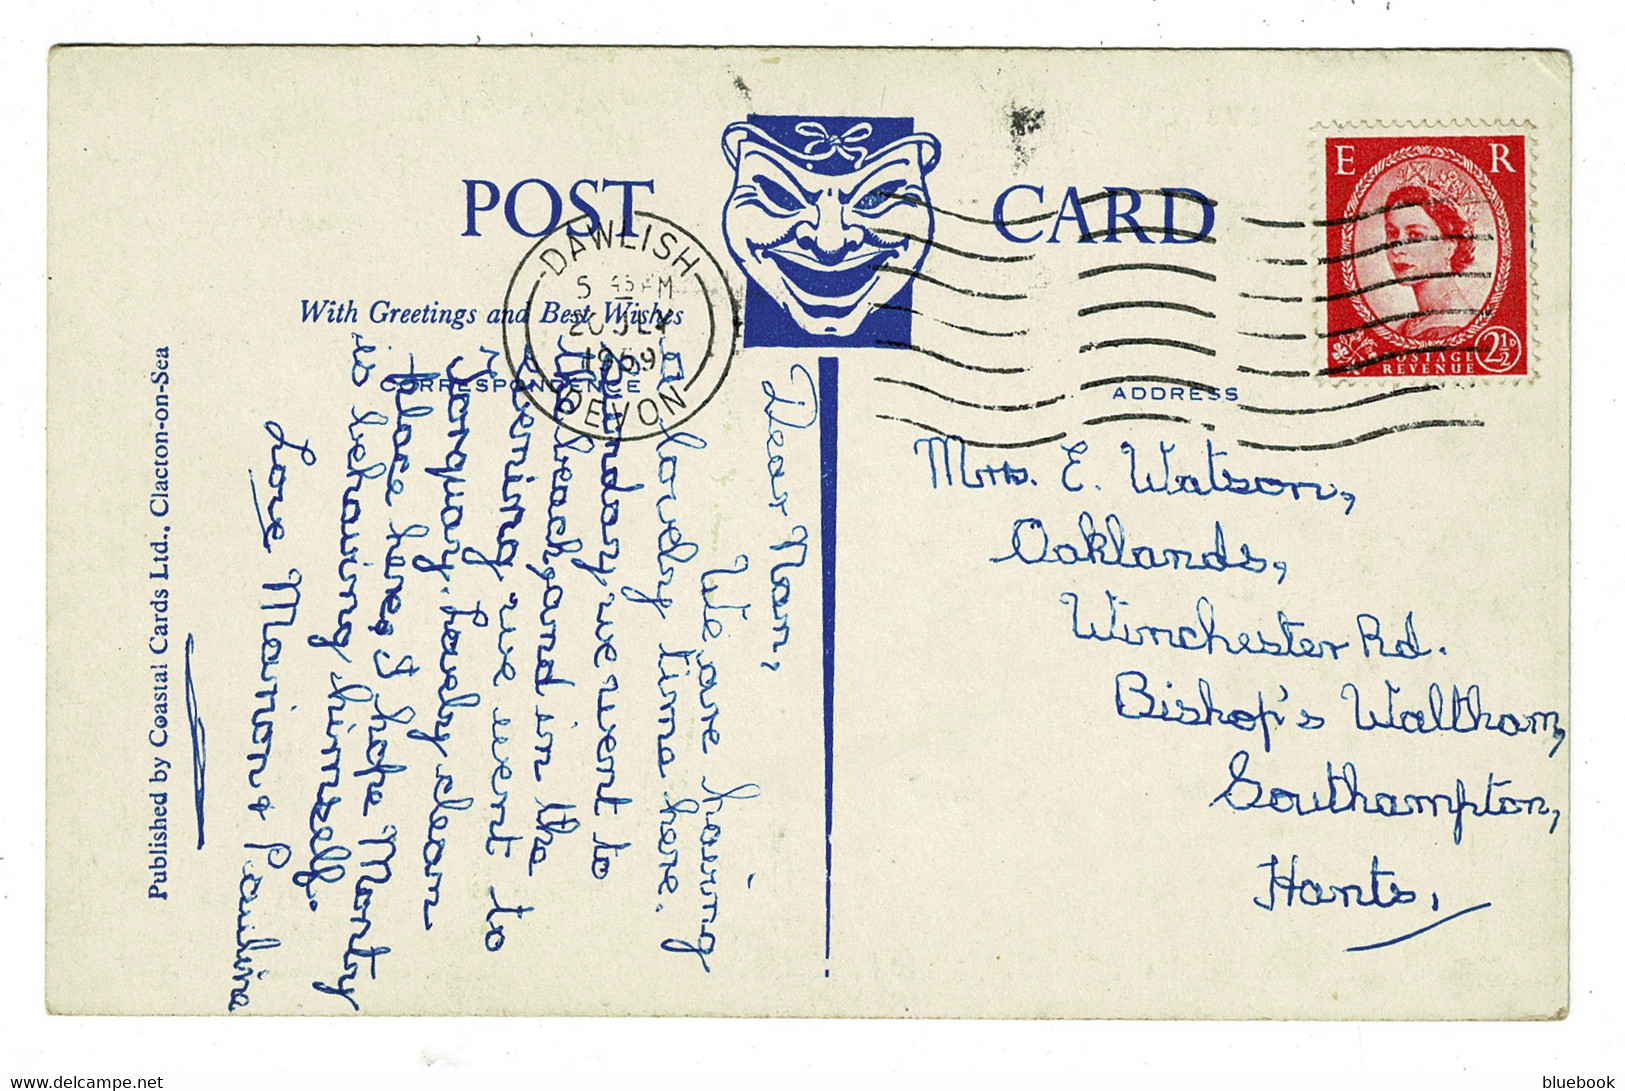 POST CARD
With Greetings and Best Wishes
CORRESPONDENCE
ADDRESS
DAWLISH
5 45 PM
20 JLY
1959
DEVON
E R
POSTAGE
REVENUE
2½D
Dear Nan,
We are having
a lovely time here.
Sunday, we went to
the beach, and in the
evening, we went to
Torquay, lovely clean
place here, I hope Monty
is behaving himself.
Love Marion & Pauline
Mrs. E. Watson,
Oaklands,
Winchester Rd.
Bishop's Waltham,
Southampton,
Hants,
Published by Coastal Cards Ltd., Clacton-on-Sea
bluebook
www.delcampe.net